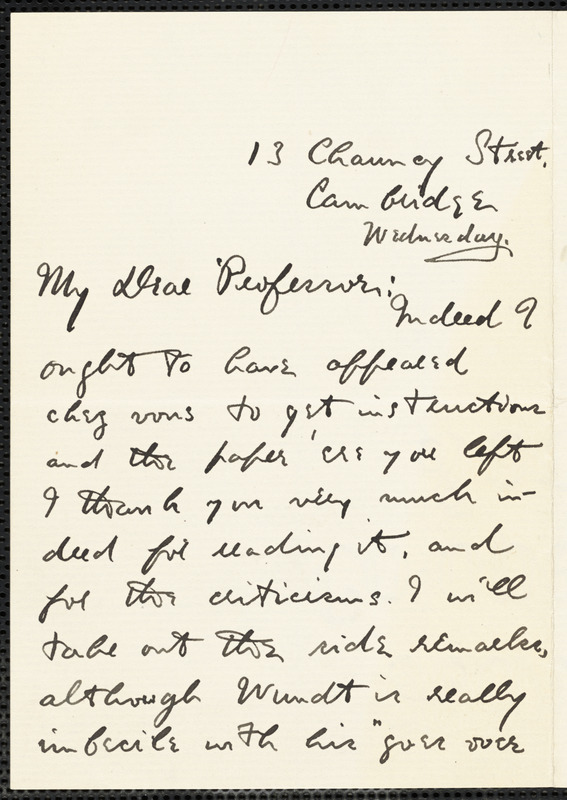 13 Chauncy Street,
Cambridge
Wednesday.
My Dear Professor:
Indeed I
ought to have appeared
chez vous to get instructions
and the paper 'ere you left
I thank you very much in-
deed for reading it, and
for the criticisms. I will
take out the side remarks,
although Wundt is really
imbecile with his "goes over